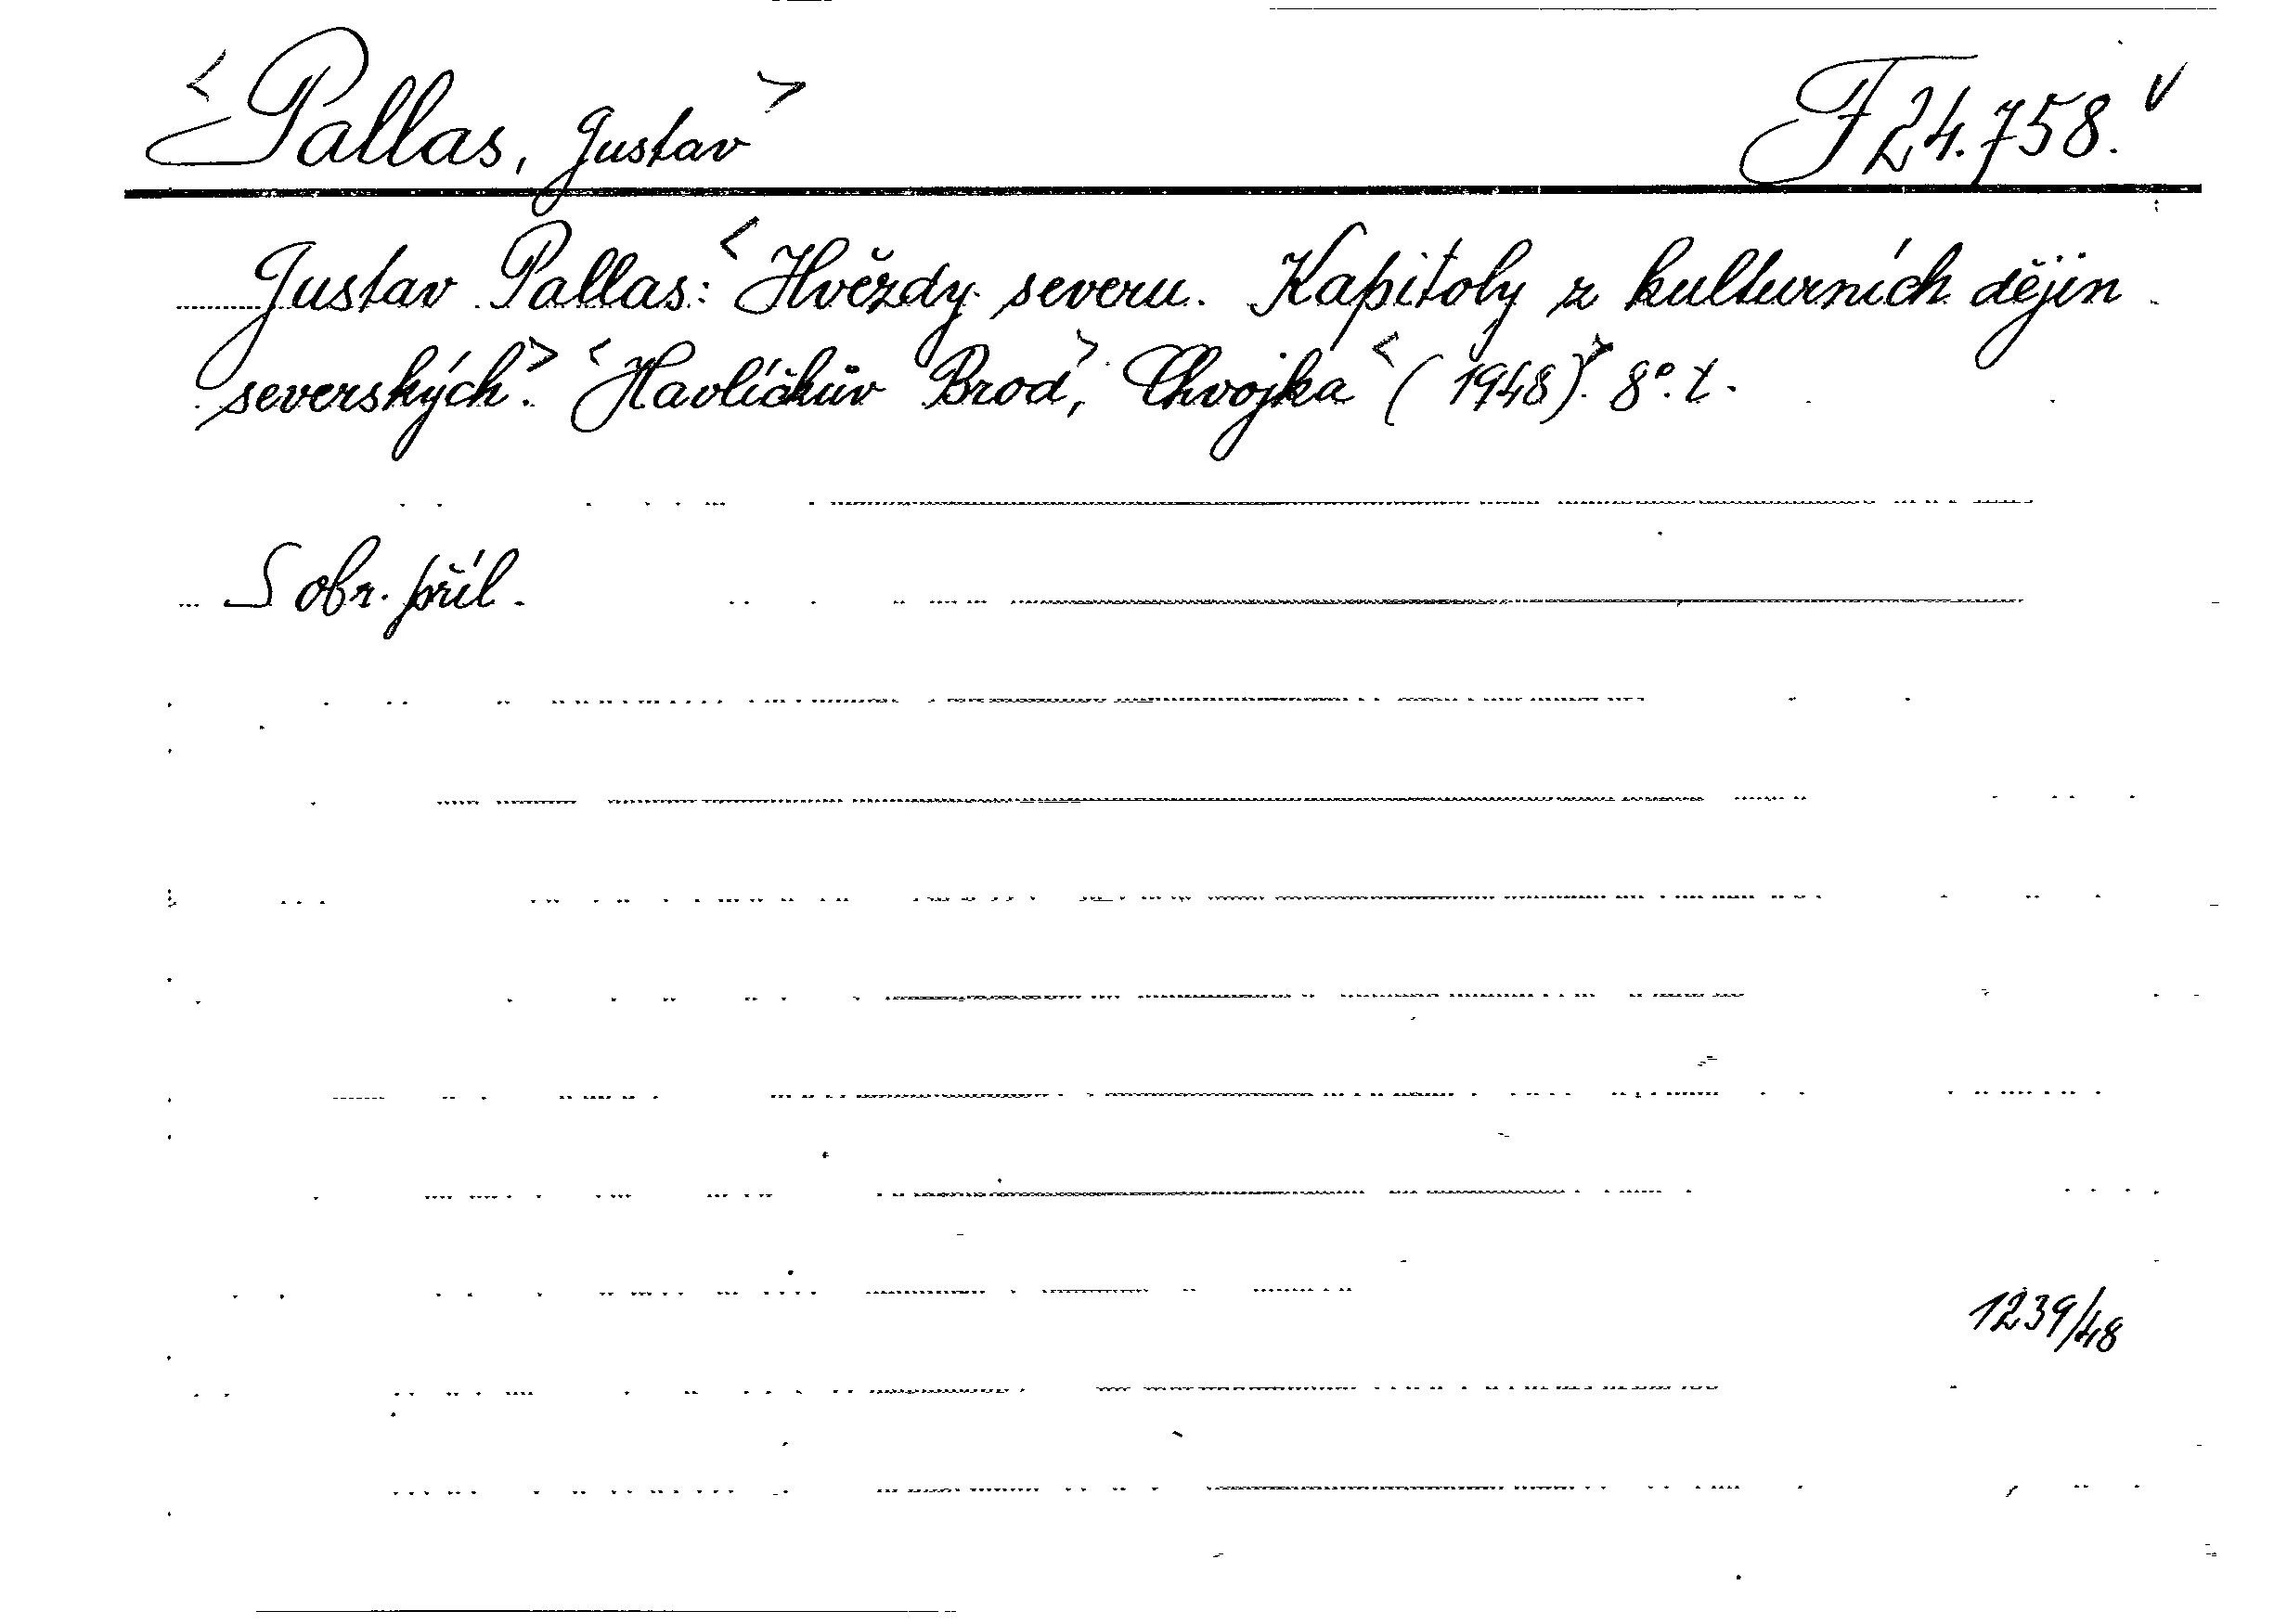 <Pallas, Gustav> F 24.758. v
Gustav Pallas: <Hvězdy severu. Kapitoly z kulturních dějin
severských>. <Havlíčkův Brod>, Chvojka <(1948)>. 8°. t.
S obr. příl.
1239/48